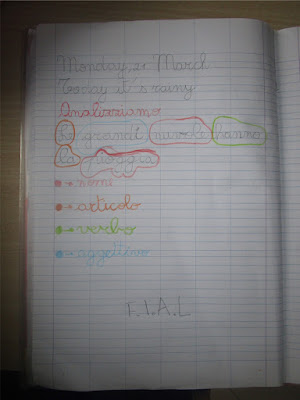 Monday, 21 March
Today it's rainy
Analizziamo
Le grandi nuvole hanno
la pioggia
● → nomi
● → articolo
● → verbo
● → aggettivo
F.I.A.L